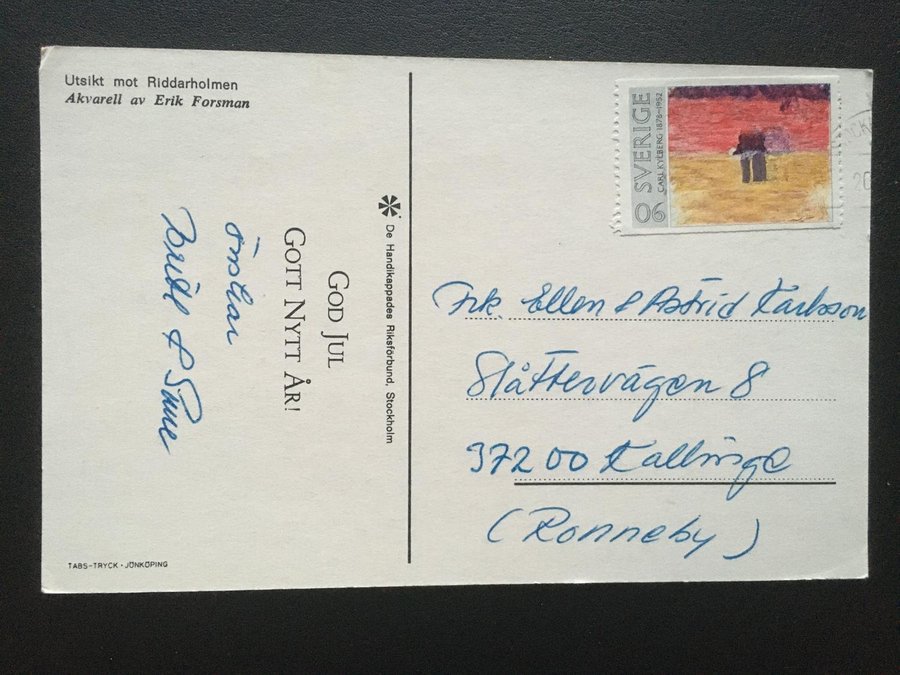 Utsikt mot Riddarholmen
Akvarell av Erik Forsman
GOD JUL
GOTT NYTT ÅR!
önskar
& Sune
TABS-TRYCK · JÖNKÖPING
De Handikappades Riksförbund, Stockholm
SVERIGE
CARL KYLBERG 1878–1952
90
Frk. Ellen & Astrid Karlsson
Slåttervägen 8
37200 Kallinge
(Ronneby)